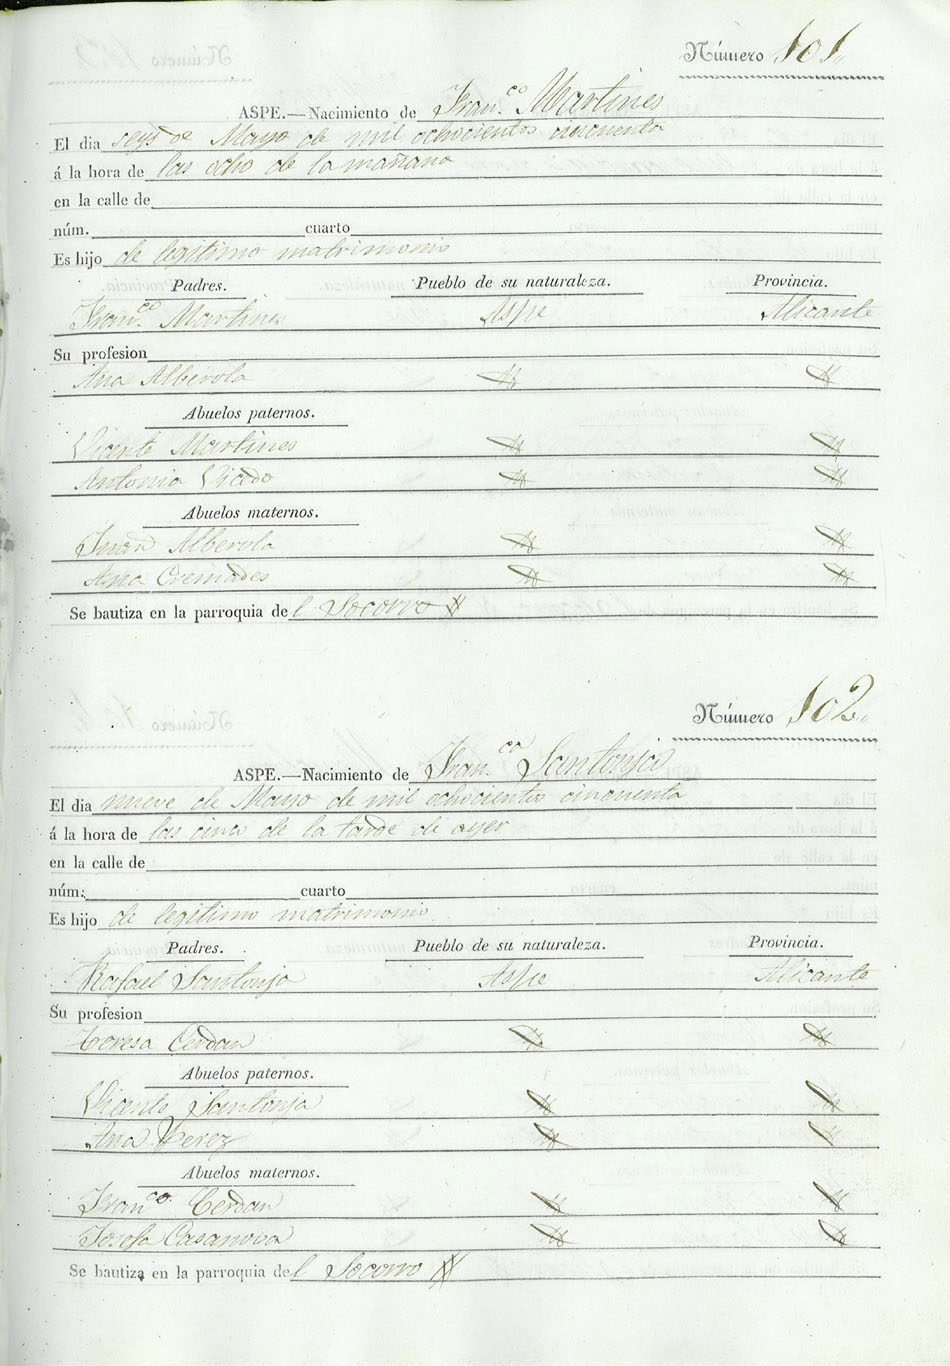 Número 101
ASPE.—Nacimiento de Fran.co Martines
El dia seys de Mayo de mil ochocientos cincuenta
á la hora de las ocho de la mañana
en la calle de
núm. cuarto
Es hijo de legitimo matrimonio
Padres. Pueblo de su naturaleza. Provincia.
Fran.co Martines Aspe Alicante
Su profesion
Ana Alberola
Abuelos paternos.
Vicente Martines
Antonia Vicedo
Abuelos maternos.
Juan Alberola
Ana Cremades
Se bautiza en la parroquia del Socorro
Número 102
ASPE.—Nacimiento de Fran.co Santonja
El dia nueve de Mayo de mil ochocientos cincuenta
á la hora de las cinco de la tarde de ayer
en la calle de
núm. cuarto
Es hijo de legitimo matrimonio
Padres. Pueblo de su naturaleza. Provincia.
Rafael Santonja Aspe Alicante
Su profesion
Teresa Cerdan
Abuelos paternos.
Vicente Santonja
Ana Perez
Abuelos maternos.
Fran.co Cerdan
Josefa Casanova
Se bautiza en la parroquia del Socorro